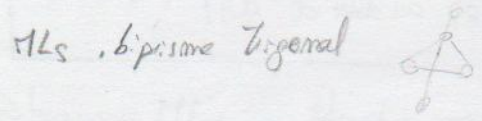 ML5 . biprisme trigonal